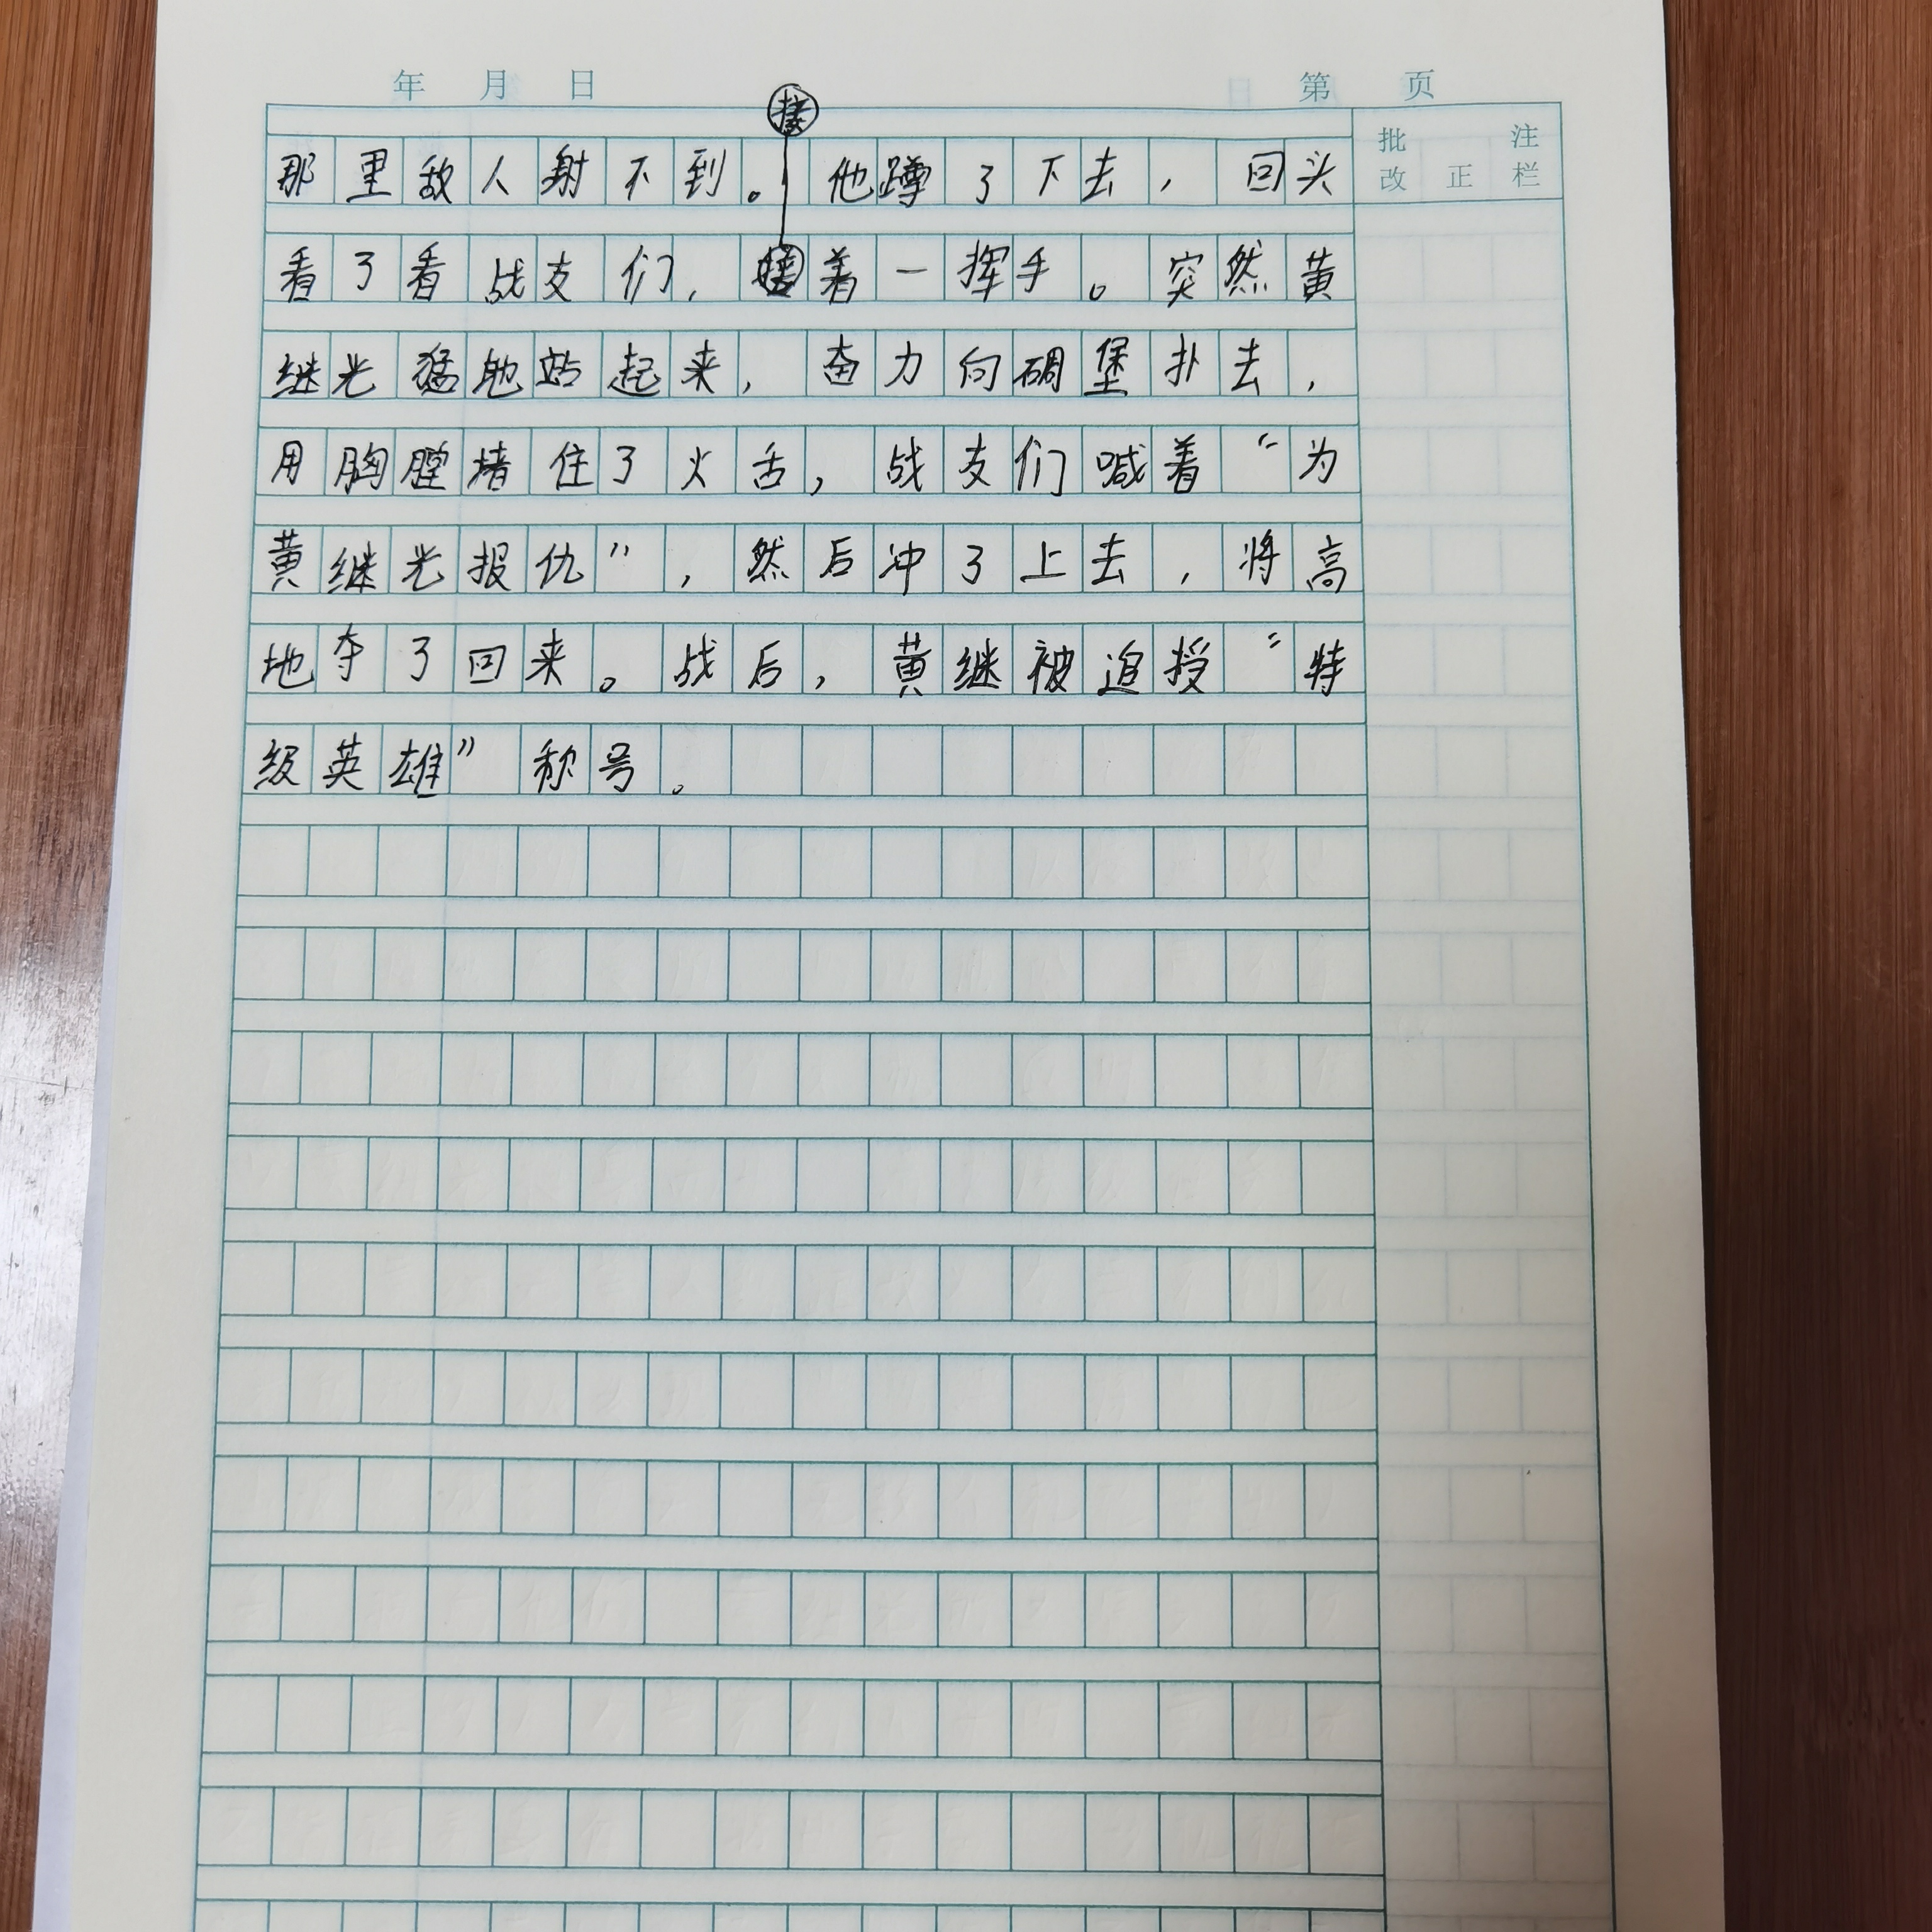 年 月 日 第 页
接
批 注
改 正 栏
那里敌人射不到。他蹲了下去，回头
看了看战友们，着一挥手。突然黄
继光猛地站起来，奋力向碉堡扑去，
用胸膛堵住了火舌，战友们喊着“为
黄继光报仇”，然后冲了上去，将高
地夺了回来。战后，黄继被追授“特
级英雄”称号。